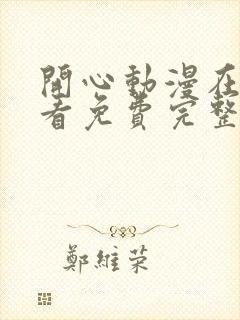 開心動漫在
看免費完整
鄭維榮